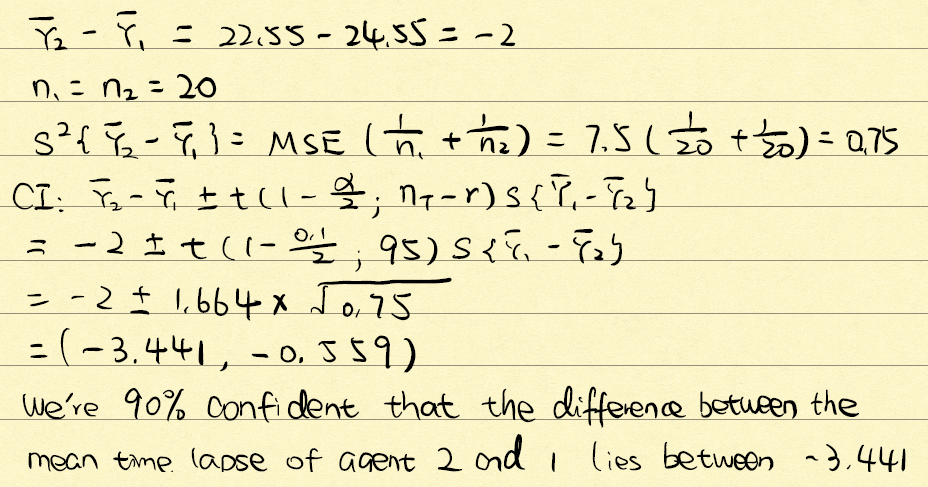 Ȳ₂ - Ȳ₁ = 22.55 - 24.55 = -2
n₁ = n₂ = 20
S²{Ȳ₂ - Ȳ₁} = MSE (1/n₁ + 1/n₂) = 7.5 (1/20 + 1/20) = 0.75
CI: Ȳ₂ - Ȳ₁ ± t(1 - α/2; n_T - r) S{Ȳ₁ - Ȳ₂}
= -2 ± t(1 - 0.1/2; 95) S{Ȳ₁ - Ȳ₂}
= -2 ± 1.664 × √0.75
= (-3.441, -0.559)
We're 90% confident that the difference between the
mean time lapse of agent 2 and 1 lies between -3.441